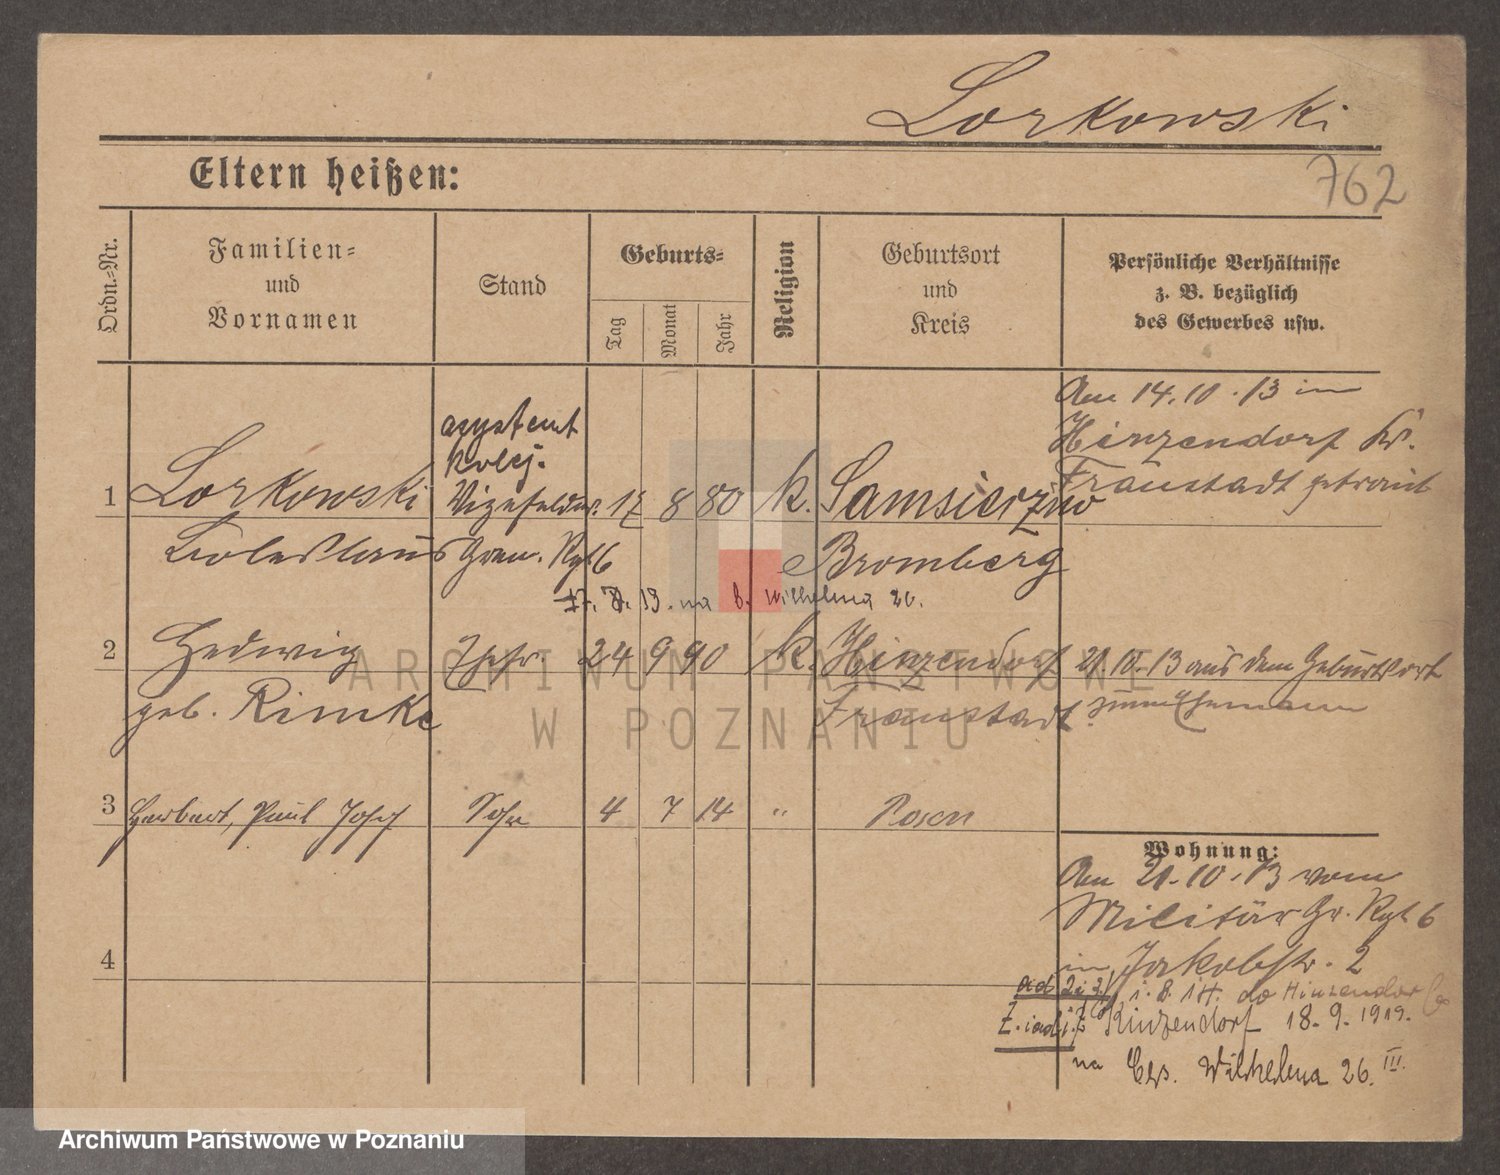 Lorkowski
Eltern heißen:
762
Ordn.-Nr.
Familien-
und
Vornamen
Stand
Geburts-
Tag
Monat
Jahr
Religion
Geburtsort
und
Kreis
Persönliche Verhältnisse
z. B. bezüglich
des Gewerbes usw.
Am 14.10.13 in
Hinzendorf Kr.
Fraustadt getraut
asystent
kolej.
1 Lorkowski Vizefeldw. 17 8 80 k. Samsierzno
Boleslaus Gren. Rgt 6 Bromberg
17. 8. 19. na C. Wilhelma 26.
2 Hedwig Ehefr. 24 9 90 k. Hinzendorf 21.10.13 aus dem Geburtsort
geb. Rimke Fraustadt zum Ehemann
3 Herbert, Paul Josef Sohn 4 7 14 " Posen
Wohnung:
Am 21.10.13 vom
Militär Gr. Rgt 6
in Jakobstr. 2
4
ad 2 i 3) 1. 8. 14. do Hinzendorf
Z. Hinzendorf 18. 9. 1919.
na Ces. Wilhelma 26. III.
ARCHIWUM PAŃSTWOWE
W POZNANIU
Archiwum Państwowe w Poznaniu